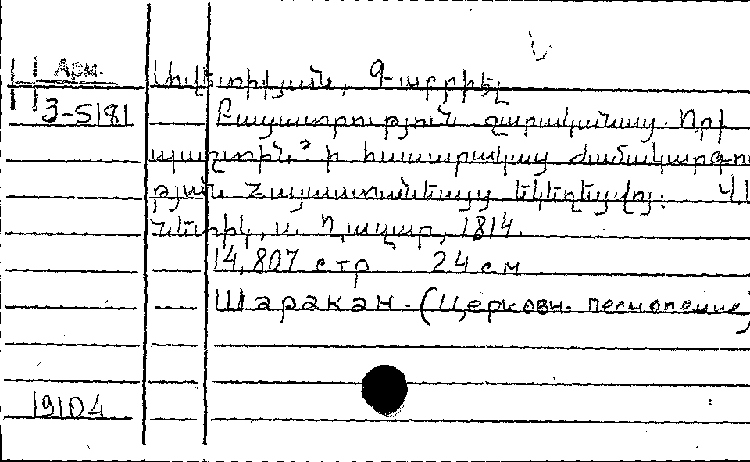 Арм.
3-5181
Աւետիքյան, Գաբրիէլ
Բացատրություն շարականաց. Որի
պաշտին ի հասարակաց ժամակարգու
թյան Հայաստանեայց եկեղեցւոյ. Վե
նետիկ, ս. Ղազար, 1814.
14, 807 стр 24 см
Шаракан. (Церковн. песнопение)
19104